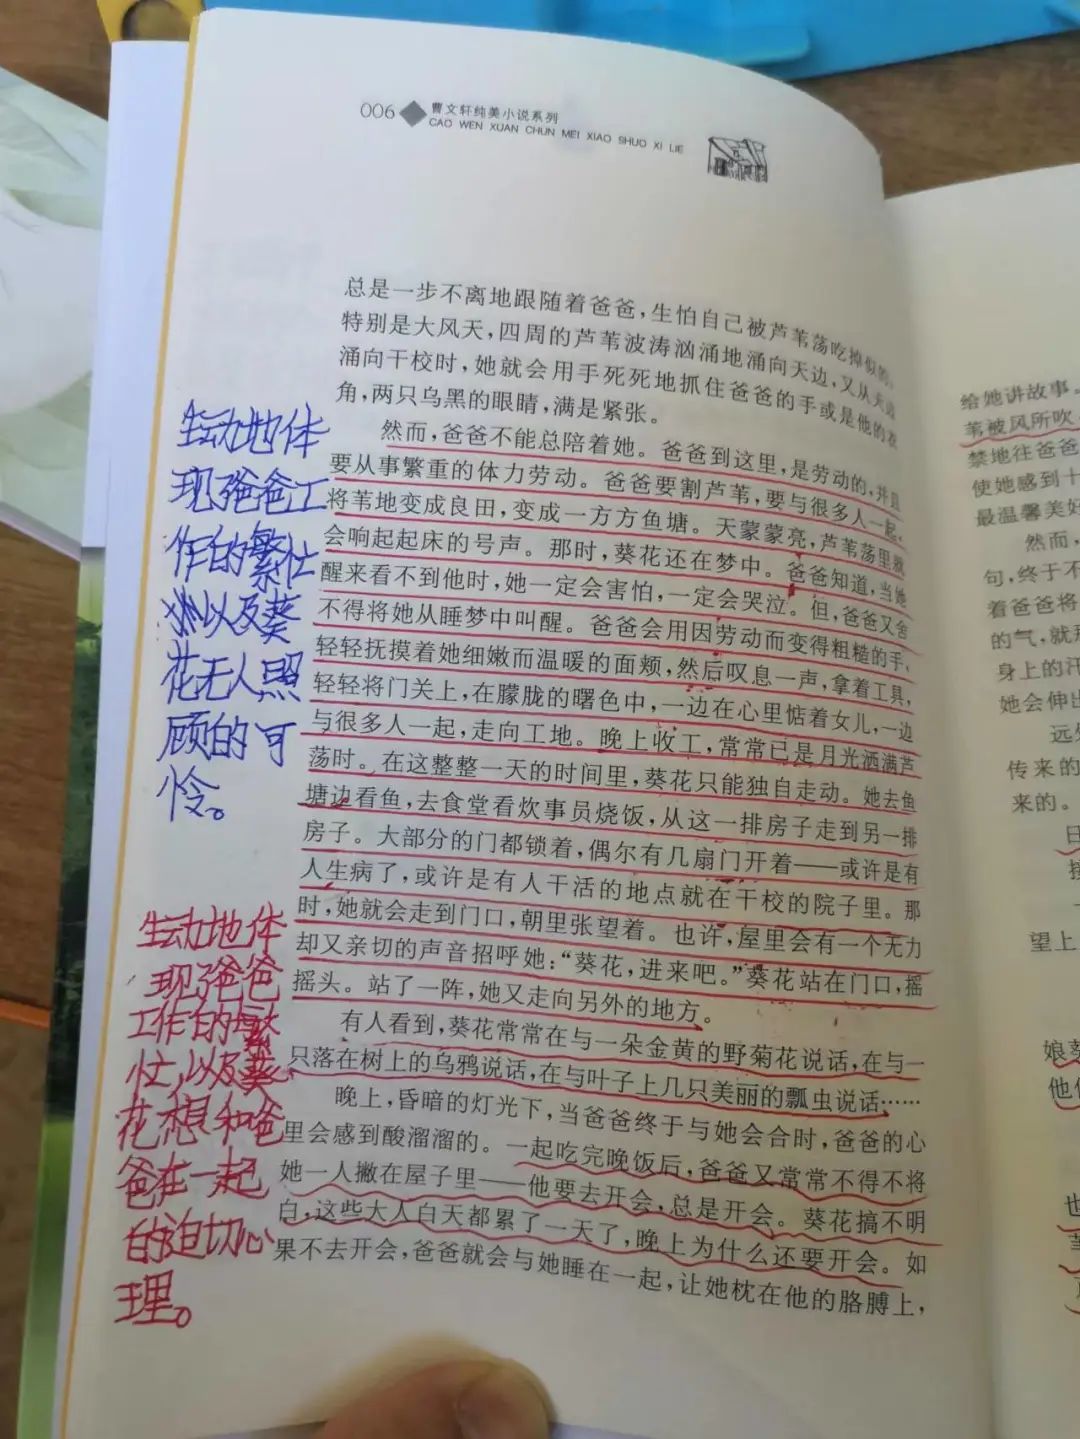 006 曹文轩纯美小说系列
CAO WEN XUAN CHUN MEI XIAO SHUO XI LIE
总是一步不离地跟随着爸爸，生怕自己被芦苇荡吃掉似的。
特别是大风天，四周的芦苇波涛汹涌地涌向天边，又从天边
涌向干校时，她就会用手死死地抓住爸爸的手或是他的衣
角，两只乌黑的眼睛，满是紧张。
然而，爸爸不能总陪着她。爸爸到这里，是劳动的，并且
要从事繁重的体力劳动。爸爸要割芦苇，要与很多人一起，
将苇地变成良田，变成一方方鱼塘。天蒙蒙亮，芦苇荡里就
会响起起床的号声。那时，葵花还在梦中。爸爸知道，当她
醒来看不到他时，她一定会害怕，一定会哭泣。但，爸爸又舍
不得将她从睡梦中叫醒。爸爸会用因劳动而变得粗糙的手，
轻轻抚摸着她细嫩而温暖的面颊，然后叹息一声，拿着工具，
轻轻将门关上，在朦胧的曙色中，一边在心里惦着女儿，一边
与很多人一起，走向工地。晚上收工，常常已是月光洒满芦
荡时。在这整整一天的时间里，葵花只能独自走动。她去鱼
塘边看鱼，去食堂看炊事员烧饭，从这一排房子走到另一排
房子。大部分的门都锁着，偶尔有几扇门开着——或许是有
人生病了，或许是有人干活的地点就在干校的院子里。那
时，她就会走到门口，朝里张望着。也许，屋里会有一个无力
却又亲切的声音招呼她：“葵花，进来吧。”葵花站在门口，摇
摇头。站了一阵，她又走向另外的地方。
有人看到，葵花常常在与一朵金黄的野菊花说话，在与一
只落在树上的乌鸦说话，在与叶子上几只美丽的瓢虫说话……
晚上，昏暗的灯光下，当爸爸终于与她会合时，爸爸的心
里会感到酸溜溜的。一起吃完晚饭后，爸爸又常常不得不将
她一人撇在屋子里——他要去开会，总是开会。葵花搞不明
白，这些大人白天都累了一天了，晚上为什么还要开会。如
果不去开会，爸爸就会与她睡在一起，让她枕在他的胳膊上，
生动地体
现了爸爸工
作的繁忙
以及葵
花无人照
顾的可
怜。
生动地体
现了爸爸
工作的繁
忙，以及葵
花想和爸
爸在一起
的迫切心
理。
给她讲故事。
苇被风所吹
禁地往爸爸
使她感到十
最温馨美好
然而，
句，终于不
着爸爸将
的气，就那
身上的汗
她会伸出
远处
传来的
来的。
日
望上
娘葵
他
也